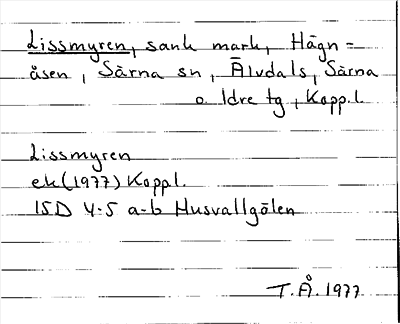 Lissmyren, sank mark, Hägn=
åsen, Särna sn, Älvdals, Särna
o. Idre tg, Kopp.l.
Lissmyren
ek (1977) Koppl.
15D 4-5 a-b Husvallgölen
T.Å. 1977